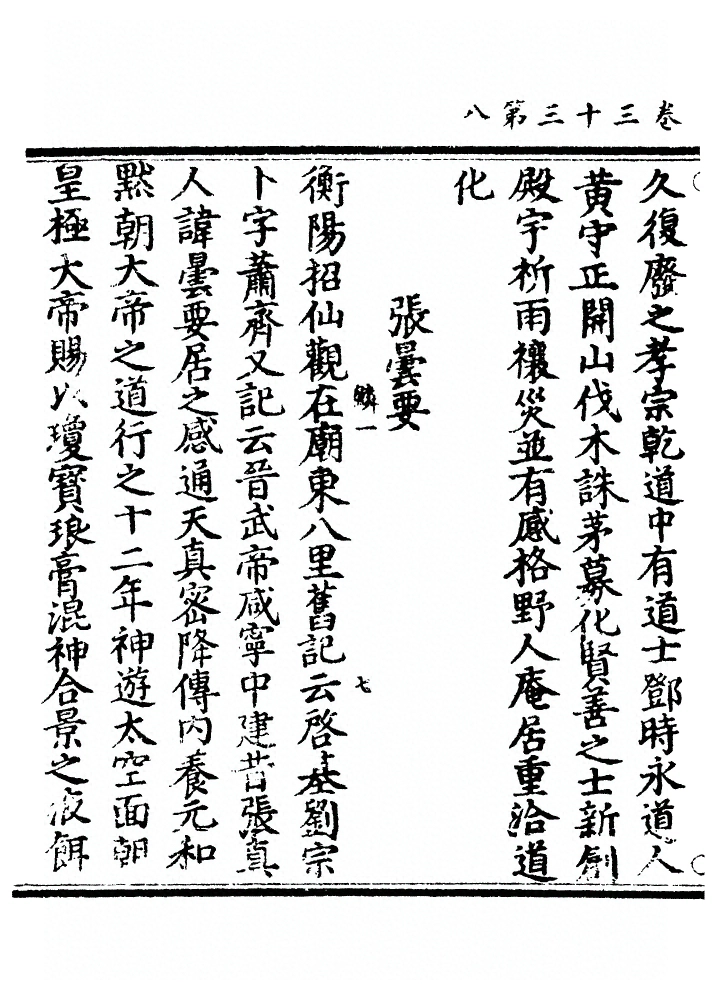 卷三十三第八
久復廢之孝宗乾道中有道士鄧時永道人
黃守正開山伐木誅茅募化賢善之士新創
殿宇祈雨禳災並有感格野人庵居重洽道
化
張曇要
鱗一
七
衡陽招仙觀在廟東八里舊記云啓基劉宗
卜字蕭齊又記云晉武帝咸寧中建昔張真
人諱曇要居之感通天真密降傳內養元和
默朝大帝之道行之十二年神遊太空面朝
皇極大帝賜以瓊寶琅膏混神合景之液餌